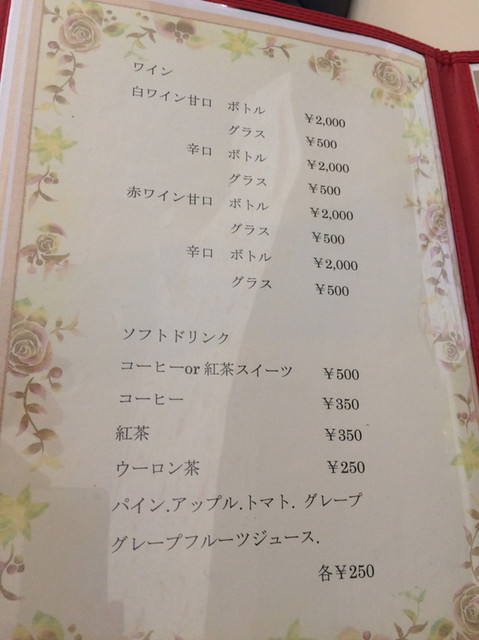 ワイン
白ワイン甘口 ボトル ￥2,000
グラス ￥500
辛口 ボトル ￥2,000
グラス ￥500
赤ワイン甘口 ボトル ￥2,000
グラス ￥500
辛口 ボトル ￥2,000
グラス ￥500
ソフトドリンク
コーヒーor 紅茶スイーツ ￥500
コーヒー ￥350
紅茶 ￥350
ウーロン茶 ￥250
パイン.アップル.トマト. グレープ
グレープフルーツジュース.
各￥250